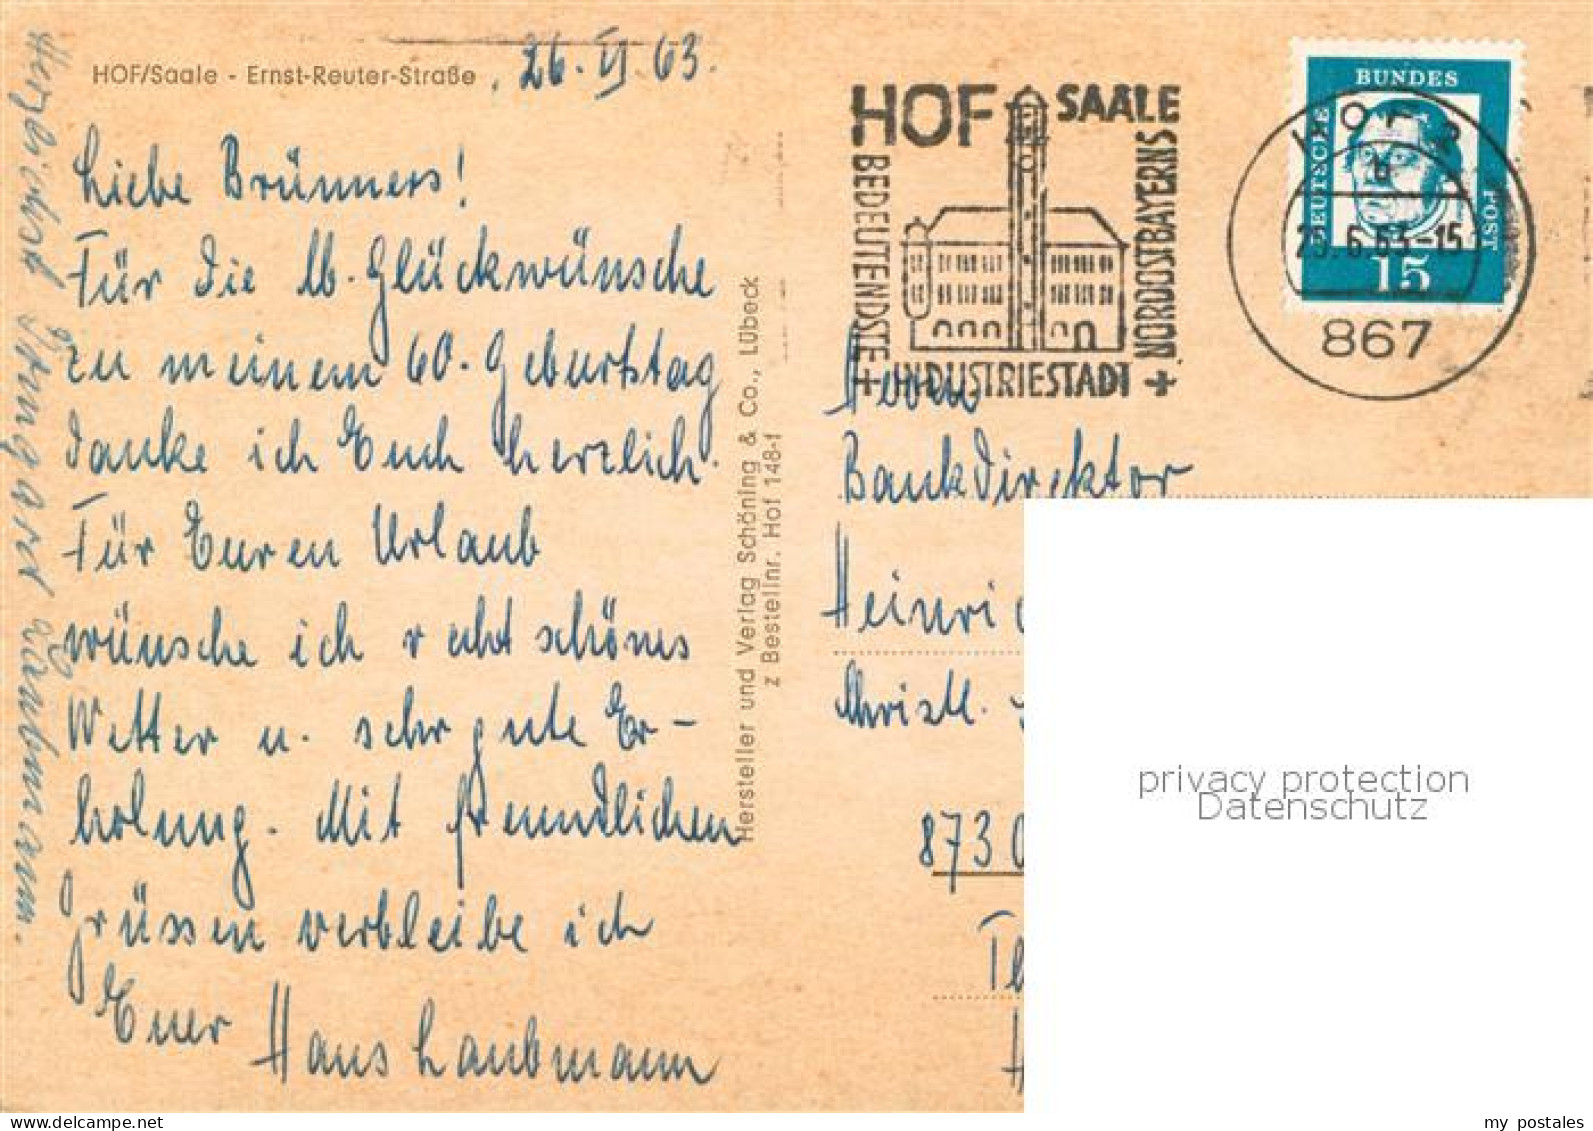 HOF/Saale - Ernst-Reuter-Straße
26. VI 63.
Liebe Brünners!
Für die lb. Glückwünsche
zu meinem 60. Geburtstag
danke ich Euch herzlich.
Für Euren Urlaub
wünsche ich recht schönes
Wetter u. sehr gute Er-
holung. Mit freundlichen
Grüssen verbleibe ich
Euer Hans Laubmann
Herzlichst Irmgard Laubmann.
Hersteller und Verlag Schöning & Co., Lübeck
z Bestellnr. Hof 148-f
HOF SAALE
BEDEUTENDSTE
INDUSTRIESTADT
NORDOSTBAYERNS
DEUTSCHE
BUNDES
POST
15
HOF 2
b
6.63.-15
867
Herrn
Bankdirektor
Heinri
Christl.
8730
privacy protection
Datenschutz
my postales